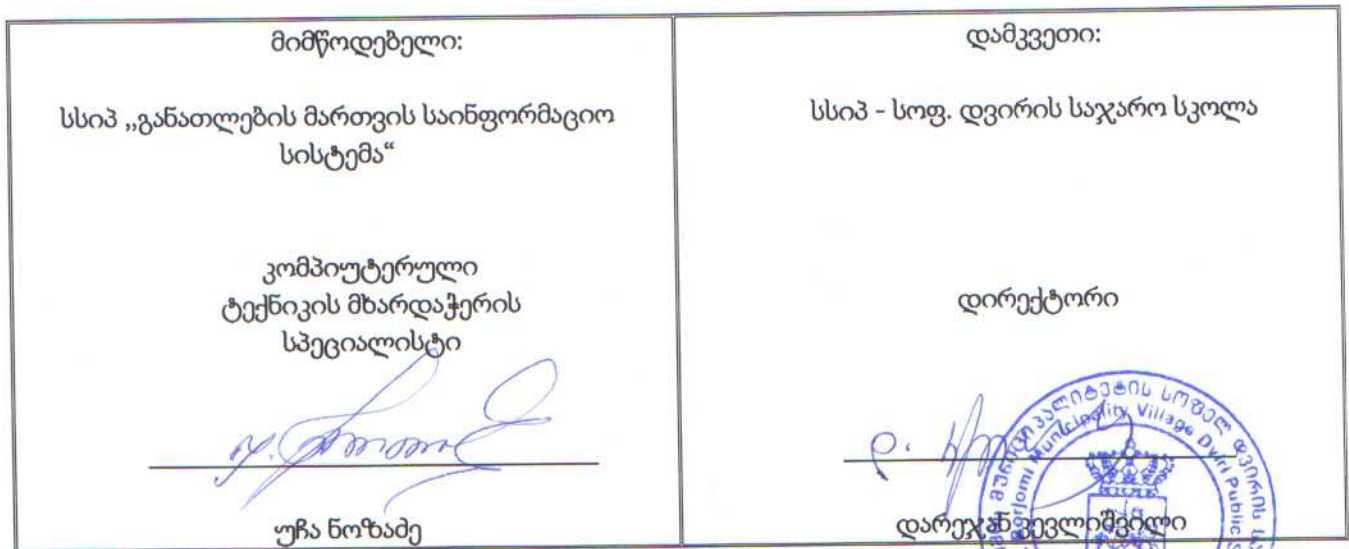 მიმწოდებელი:
სსიპ „განათლების მართვის საინფორმაციო
სისტემა“
კომპიუტერული
ტექნიკის მხარდაჭერის
სპეციალისტი
უჩა ნოზაძე
დამკვეთი:
სსიპ - სოფ. დვირის საჯარო სკოლა
დირექტორი
დარეჯან კევლიშვილი
მუნიციპალიტეტის სოფელ დვირის
Borjomi Municipality Village Dviri Public